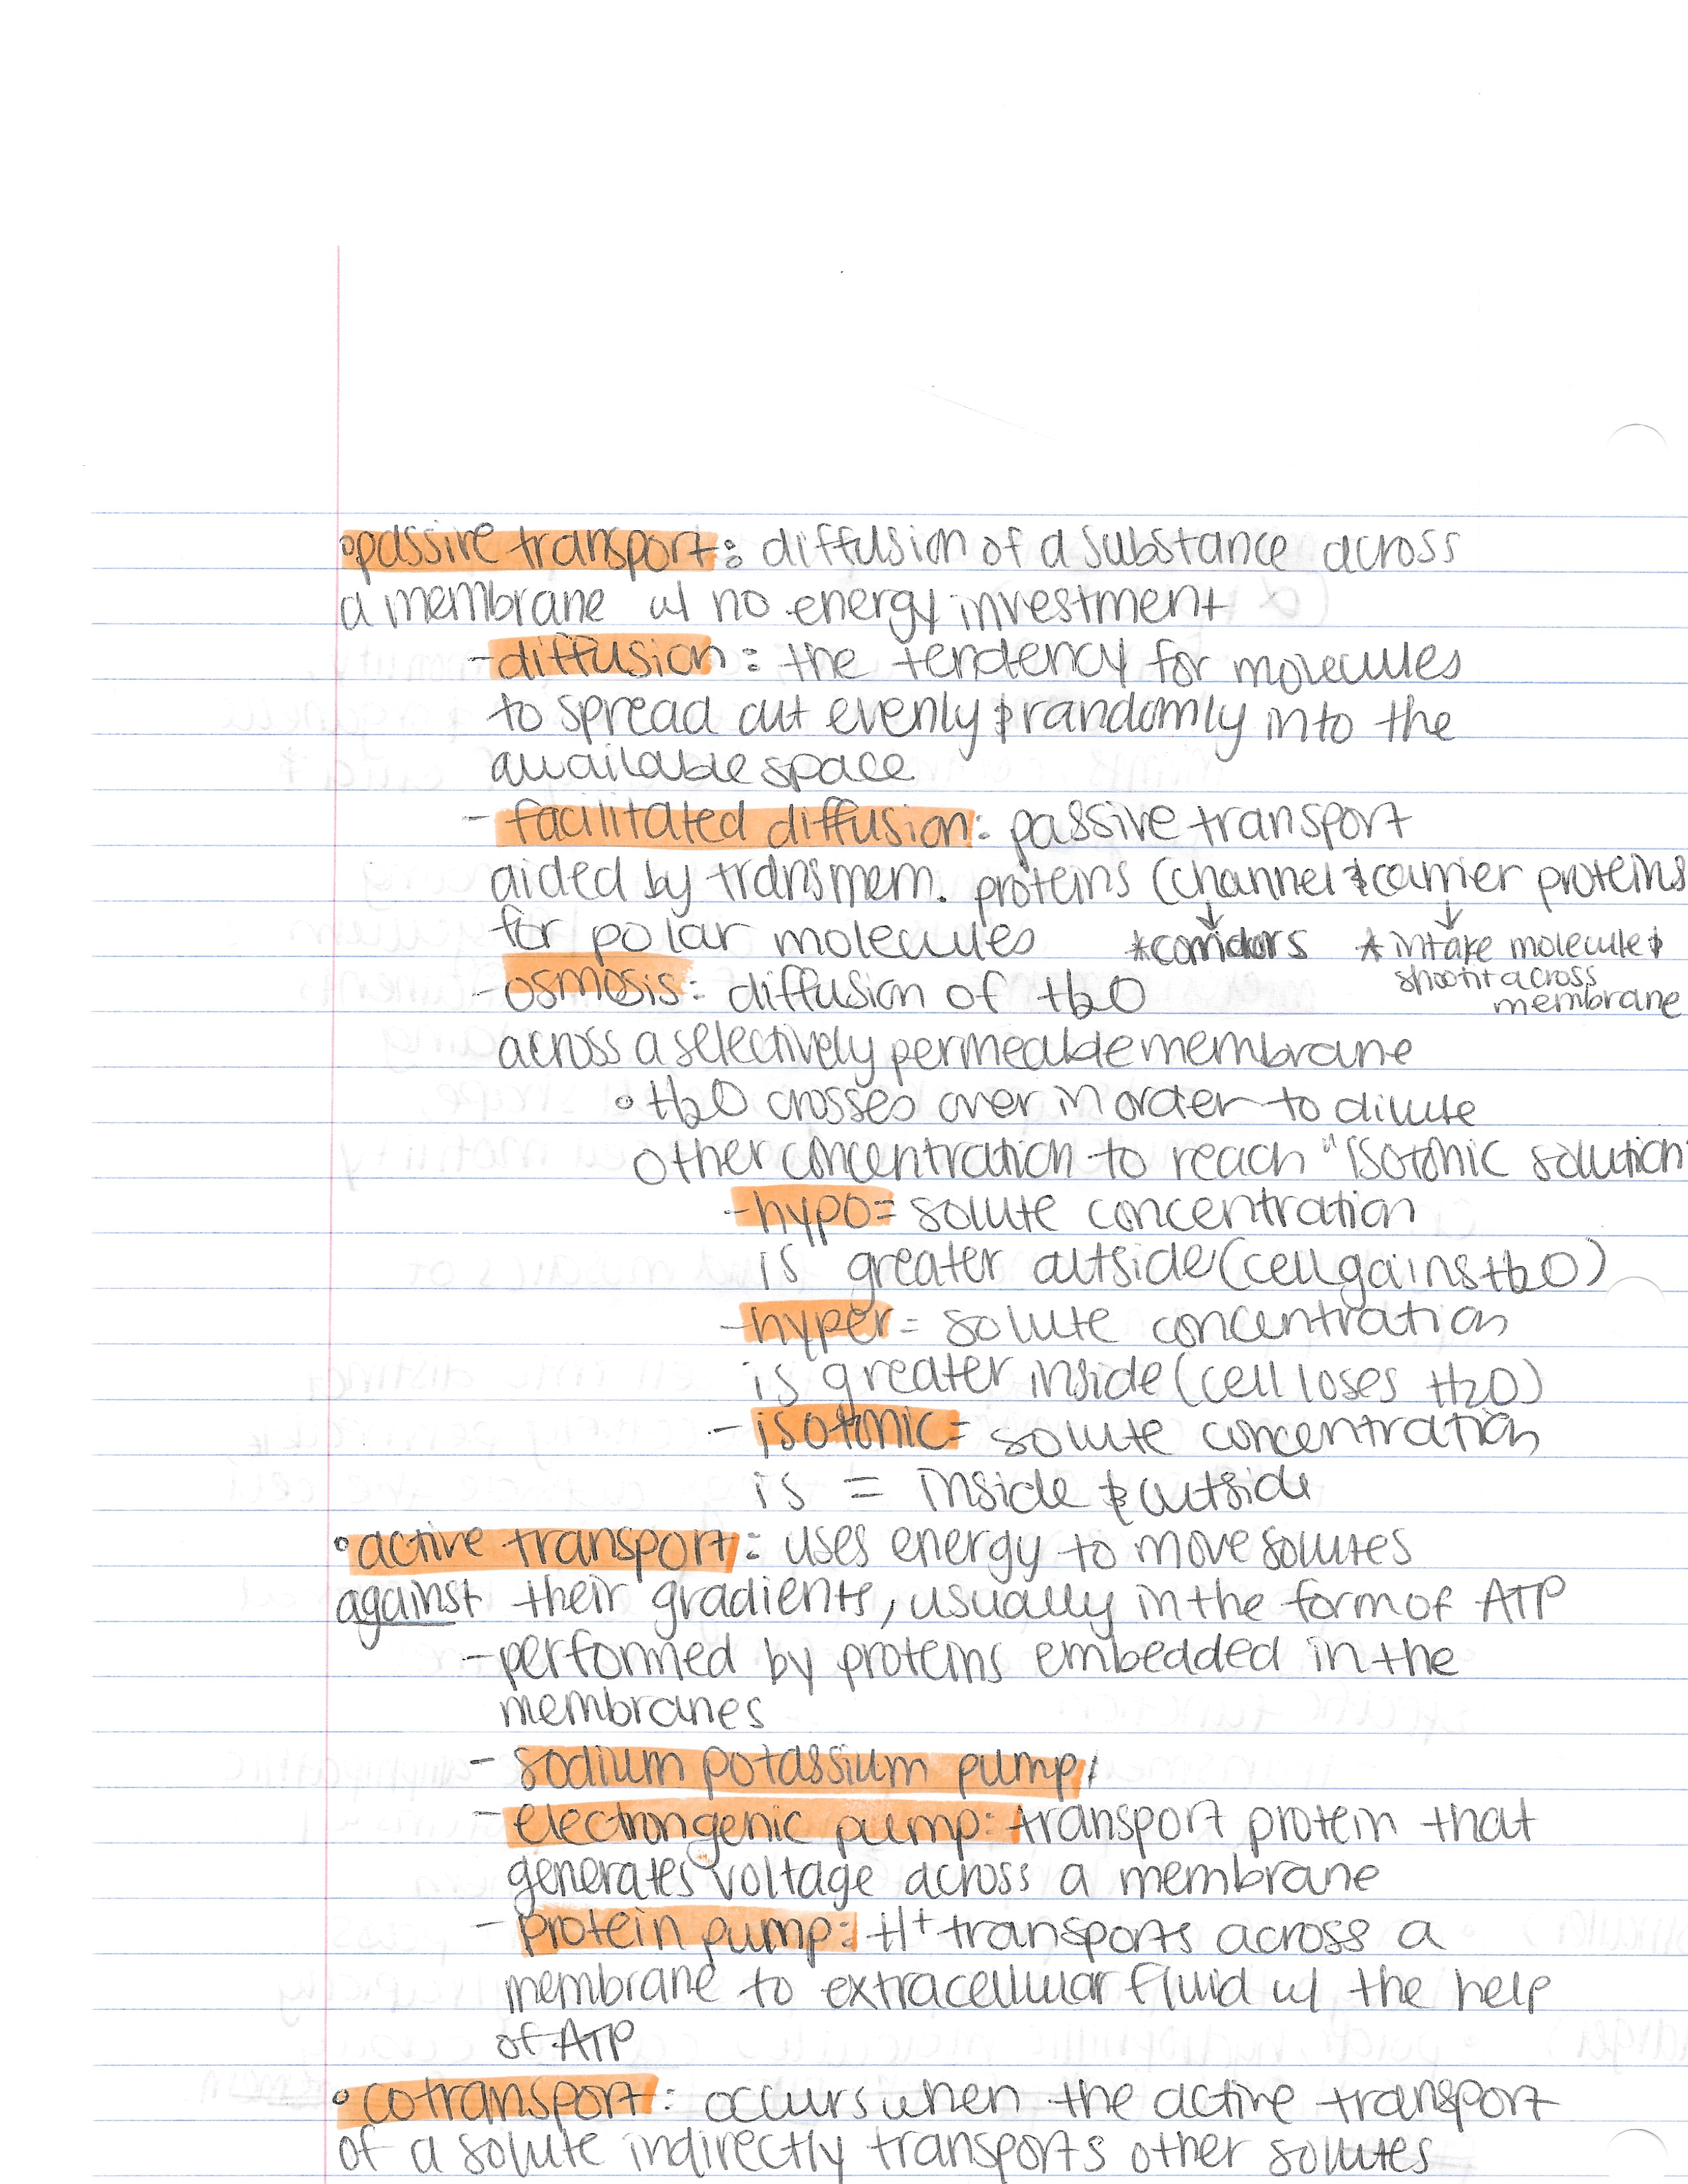 •passive transport: diffusion of a substance across
a membrane w/ no energy investment
-diffusion: the tendency for molecules
to spread out evenly & randomly into the
available space
-facilitated diffusion: passive transport
aided by transmem. proteins (channel & carrier proteins
for polar molecules *corridors *intake molecule &
shoot it across
membrane
-osmosis: diffusion of H2O
across a selectively permeable membrane
•H2O crosses over in order to dilute
other concentration to reach "isotonic solution"
-hypo= solute concentration
is greater outside (cell gains H2O)
-hyper= solute concentration
is greater inside (cell loses H2O)
-isotonic= solute concentration
is = inside & outside
•active transport: uses energy to move solutes
against their gradients, usually in the form of ATP
-performed by proteins embedded in the
membranes
-sodium potassium pump
-electrongenic pump: transport protein that
generates voltage across a membrane
-protein pump: H+ transports across a
membrane to extracellular fluid w/ the help
of ATP
•cotransport: occurs when the active transport
of a solute indirectly transports other solutes